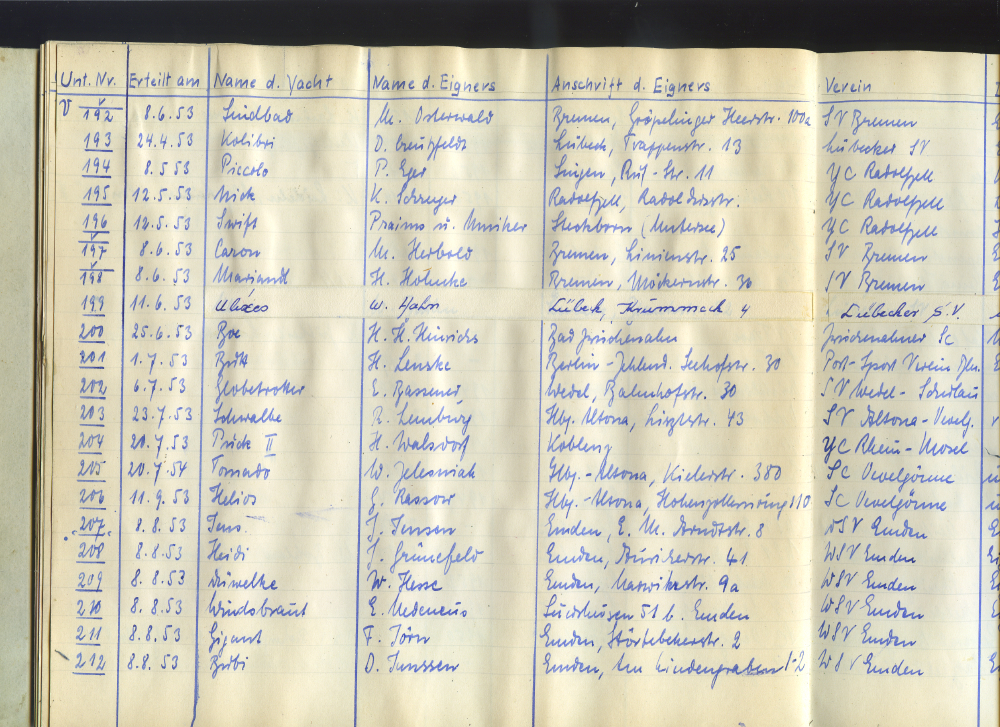 Unt. Nr. Erteilt am Name d. Yacht Name d. Eigners Anschrift d. Eigners Verein
V 192 8.6.53 Sindbad M. Osterwald Bremen, Gröpelinger Heerstr. 100a SV Bremen
193 24.4.53 Kolibri D. Creutzfeldt Lübeck, Trappenstr. 13 Lübecker SV
194 8.5 53 Piccolo P. Eger Singen, Ruf-Str. 11 YC Radolfzell
195 12.5.53 Mick K. Radolfzell, YC Radolfzell
196 12.5.53 Swift u. Steckborn (Untersee) YC Radolfzell
197 8.6.53 Caron M. Herbold Bremen, Linienstr. 25 SV Bremen
198 8.6.53 Mariandl H. Bremen, Möckernstr. 30 SV Bremen
199 11.6.53 Ulixes W. Hahn Lübeck, Krummeck 4 Lübecker S.V.
200 25.6.53 Boe H. H. Hinrichs Bad Zwischenahn Zwischenahner SC
201 1.7.53 Britt H. Lenske Berlin-Zehlend. Seehofstr. 30 Post-Sport Verein Bln.
202 6.7.53 Globetrotter E. Bassener Wedel, Bahnhofstr. 30 SV Wedel-Schulau
203 23.7.53 Schwalbe R. Lemburg Hbg. Altona, 43 SV Altona-Oevelg.
204 20.7.53 Puck II H. Walsdorf Koblenz YC Rhein-Mosel
205 20.7.54 Tornado W. Jelesniak Hbg.-Altona, Kielerstr. 380 SC Oevelgönne
206 11.9.53 Helios G. Rassow Hbg.-Altona, Hohenzollernring 110 SC Oevelgönne
207 8.8.53 Jens J. Janssen Emden, E. M. Arndtstr. 8 WSV Emden
208 8.8.53 Heidi J. Grunefeld Emden, 41 WSV Emden
209 8.8.53 Düwelke W. Hesse Emden, 9a WSV Emden
210 8.8.53 Windsbraut E. Medenius 51 b. Emden WSV Emden
211 8.8.53 Gigant F. Törn Emden, Störtebekerstr. 2 WSV Emden
212 8.8.53 Bubi D. Janssen Emden, Am Hindengraben 1-2 WSV Emden